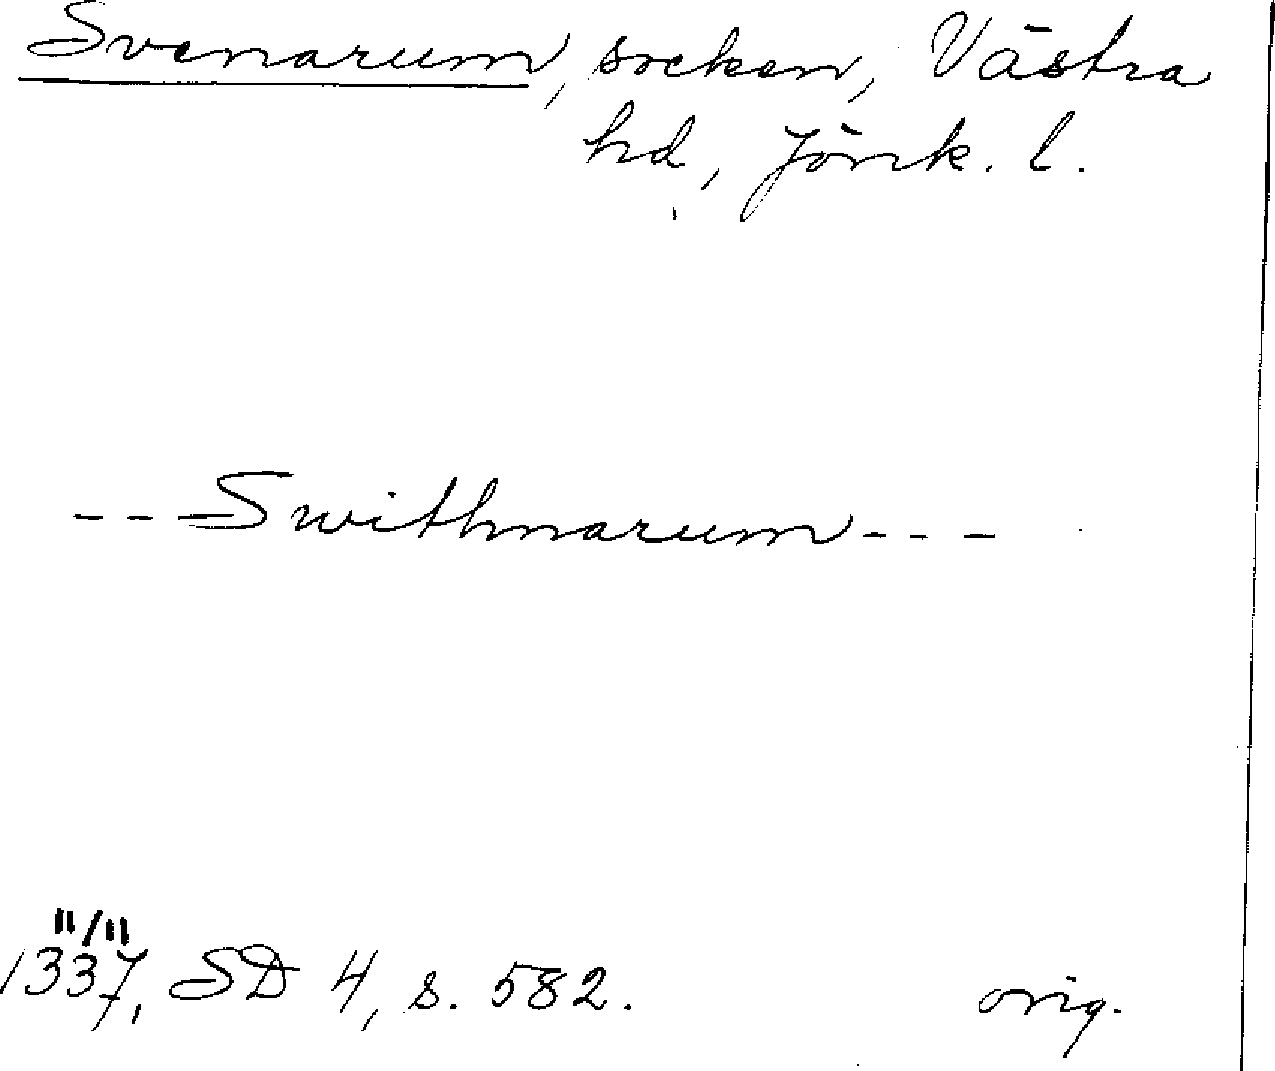 Svenarum, socken, Västra
hd, Jönk. l.
---Swithnarum---
11/11
1337, SD 4, s. 582. orig.